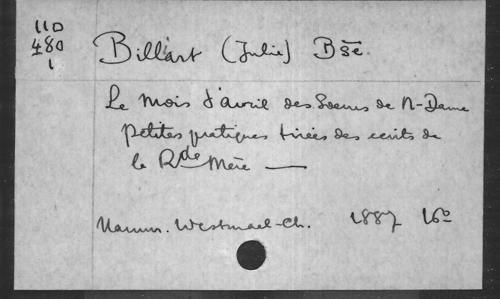 110
480
1
Billiart (Julie) Bse
Le mois d'avril des Soeurs de N-Dame
petites pratiques tirées des ecrits de
la Rde Mère —
Namur. Wesmael-Ch. 1887 16o